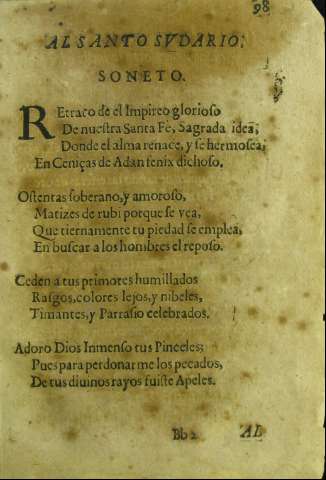 98
AL SANTO SVDARIO;
SONETO.
REtrato de el Impireo glorioso
De nuestra Santa Fè, Sagrada idea;
Donde el alma renace, y se hermosea,
En Ceniças de Adan fenix dichoso.
Ostentas soberano, y amoroso,
Matizes de rubi porque se vea,
Que tiernamente tu piedad se emplea,
En buscar a los hombres el reposo.
Ceden a tus primores humillados
Rasgos, colores lejos, y nibeles,
Timantes, y Parrasio celebrados.
Adoro Dios Inmenso tus Pinceles;
Pues para perdonarme los pecados,
De tus diuinos rayos fuiste Apeles.
Bb 2 AL